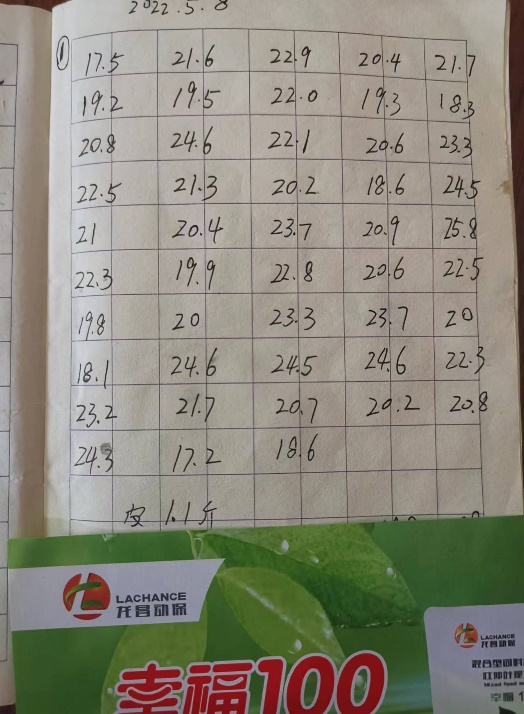 2022.5.8
① 17.5 21.6 22.9 20.4 21.7
19.2 19.5 22.0 19.3 18.3
20.8 24.6 22.1 20.6 23.3
22.5 21.3 20.2 18.6 24.5
21 20.4 23.7 20.9 25.8
22.3 19.9 22.8 20.6 22.5
19.8 20 23.3 23.7 20
18.1 24.6 24.5 24.6 22.3
23.2 21.7 20.7 20.2 20.8
24.3 17.2 18.6
皮 1.1斤
LACHANCE
龙昌动保
幸福100
LACHANCE
龙昌动保
混合型饲料
幸福 1